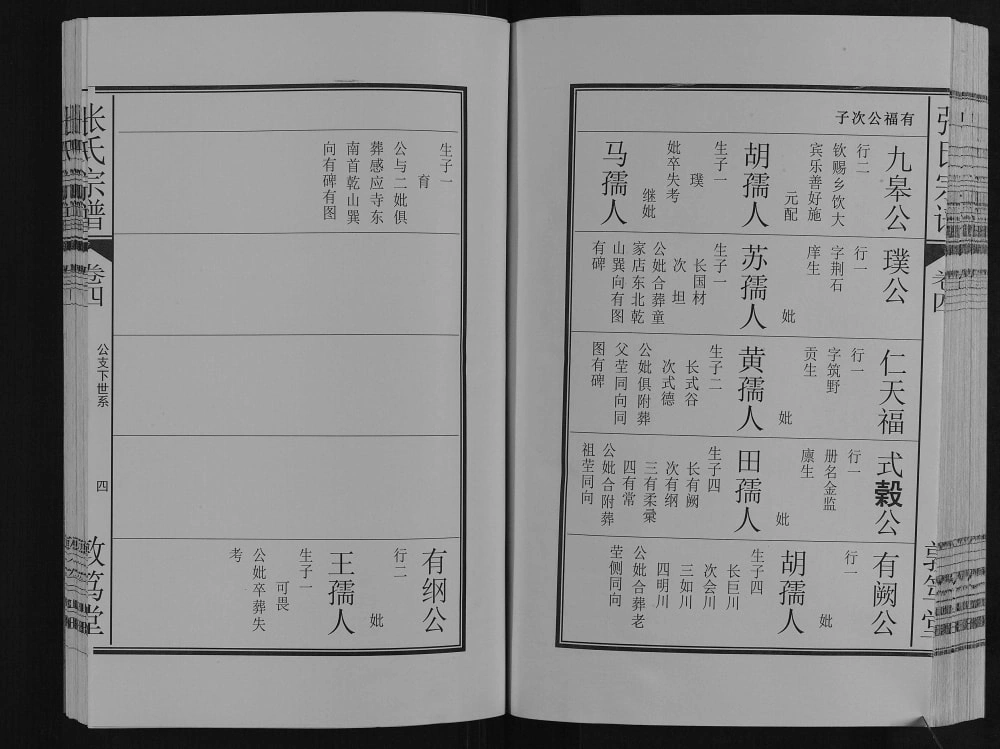 有福公次子
九皋公
行二
钦赐乡饮大
宾乐善好施
元配
胡孺人
生子一
璞
妣卒失考
继妣
马孺人
璞公
行一
字荆石
庠生
妣
苏孺人
生子一
长国材
次坦
公妣合葬童
家店东北乾
山巽向有图
有碑
仁天福
行一
字筑野
贡生
妣
黄孺人
生子二
长式谷
次式德
公妣俱附葬
父茔同向同
图有碑
式榖公
行一
册名金监
廪生
妣
田孺人
生子四
长有阙
次有纲
三有柔彙
四有常
公妣合附葬
祖茔同向
有阙公
行一
妣
胡孺人
生子四
长巨川
次会川
三如川
四明川
公妣合葬老
茔侧同向
生子一
育
公与二妣俱
葬感应寺东
南首乾山巽
向有碑有图
有纲公
行二
妣
王孺人
生子一
可畏
公妣卒葬失
考
张氏宗谱
卷四
公支下世系
四
敦笃堂